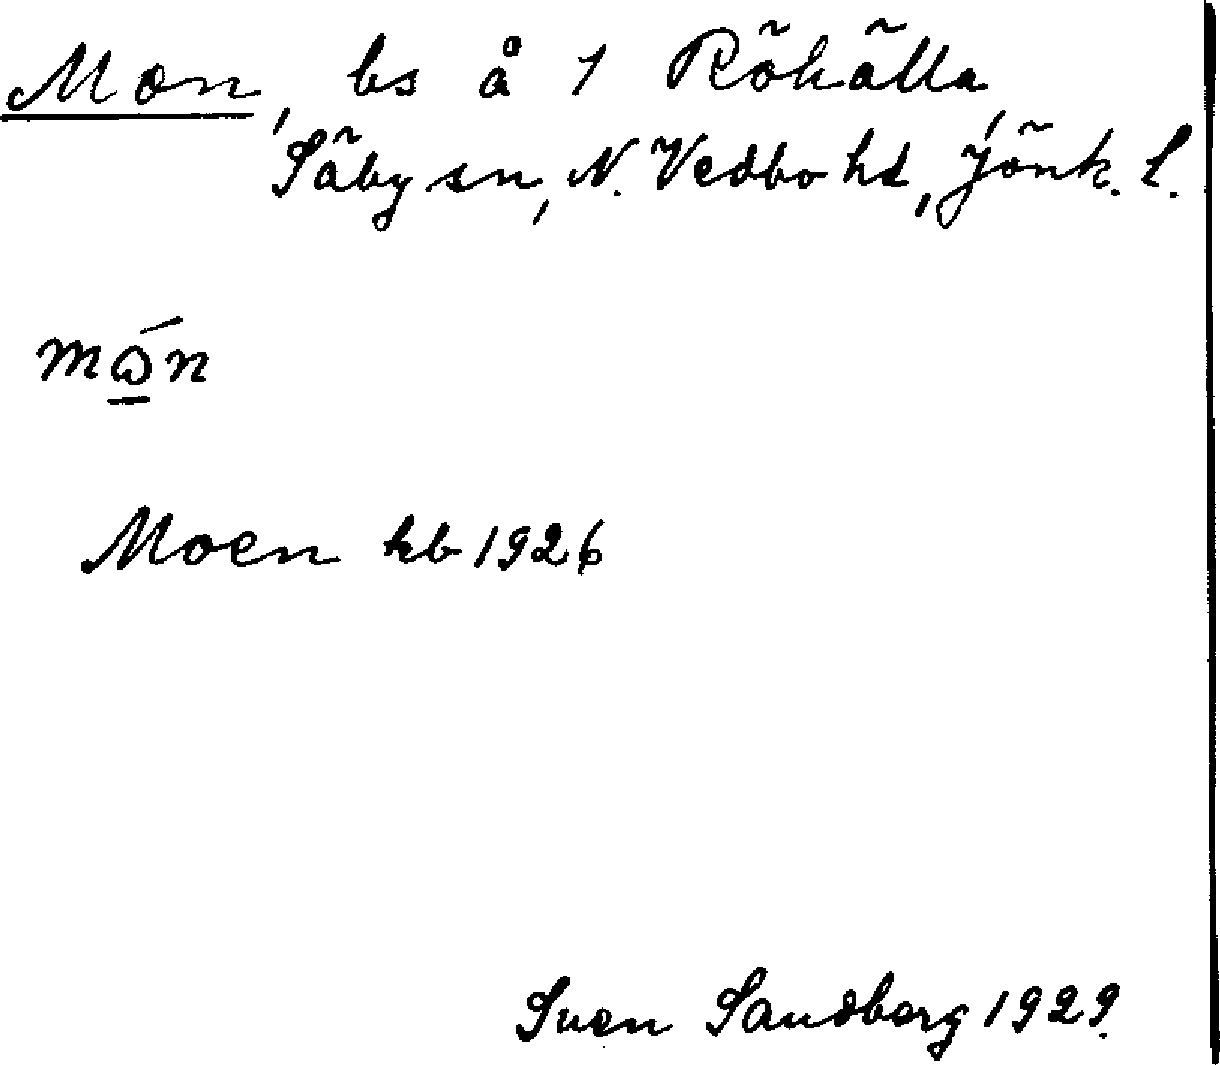 Mon, bs å 1 Röhälla,
Säby sn, N. Vedbo hd, Jönk. l.
mɷ̲́n
Moen kb 1926
Sven Sandberg 1929.